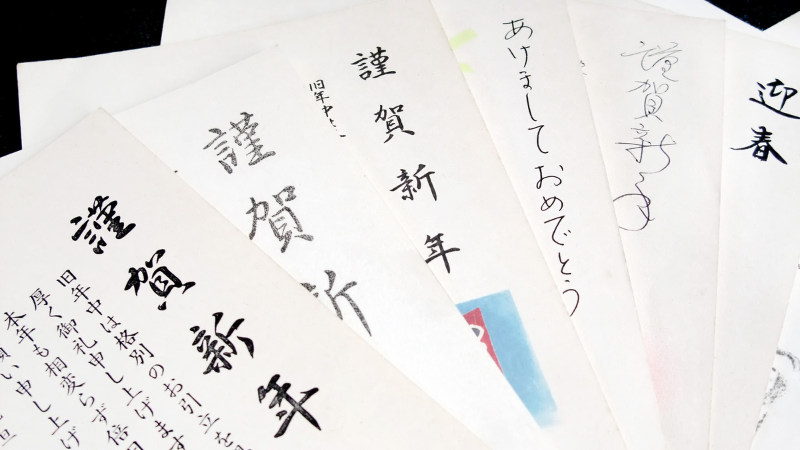 迎春
謹賀新年
あけましておめでとう
謹賀新年
旧年中
謹賀新
謹賀新年
旧年中は格別のお引立を
厚く御礼申し上げます
本年も相変らず倍
願い申し上げ